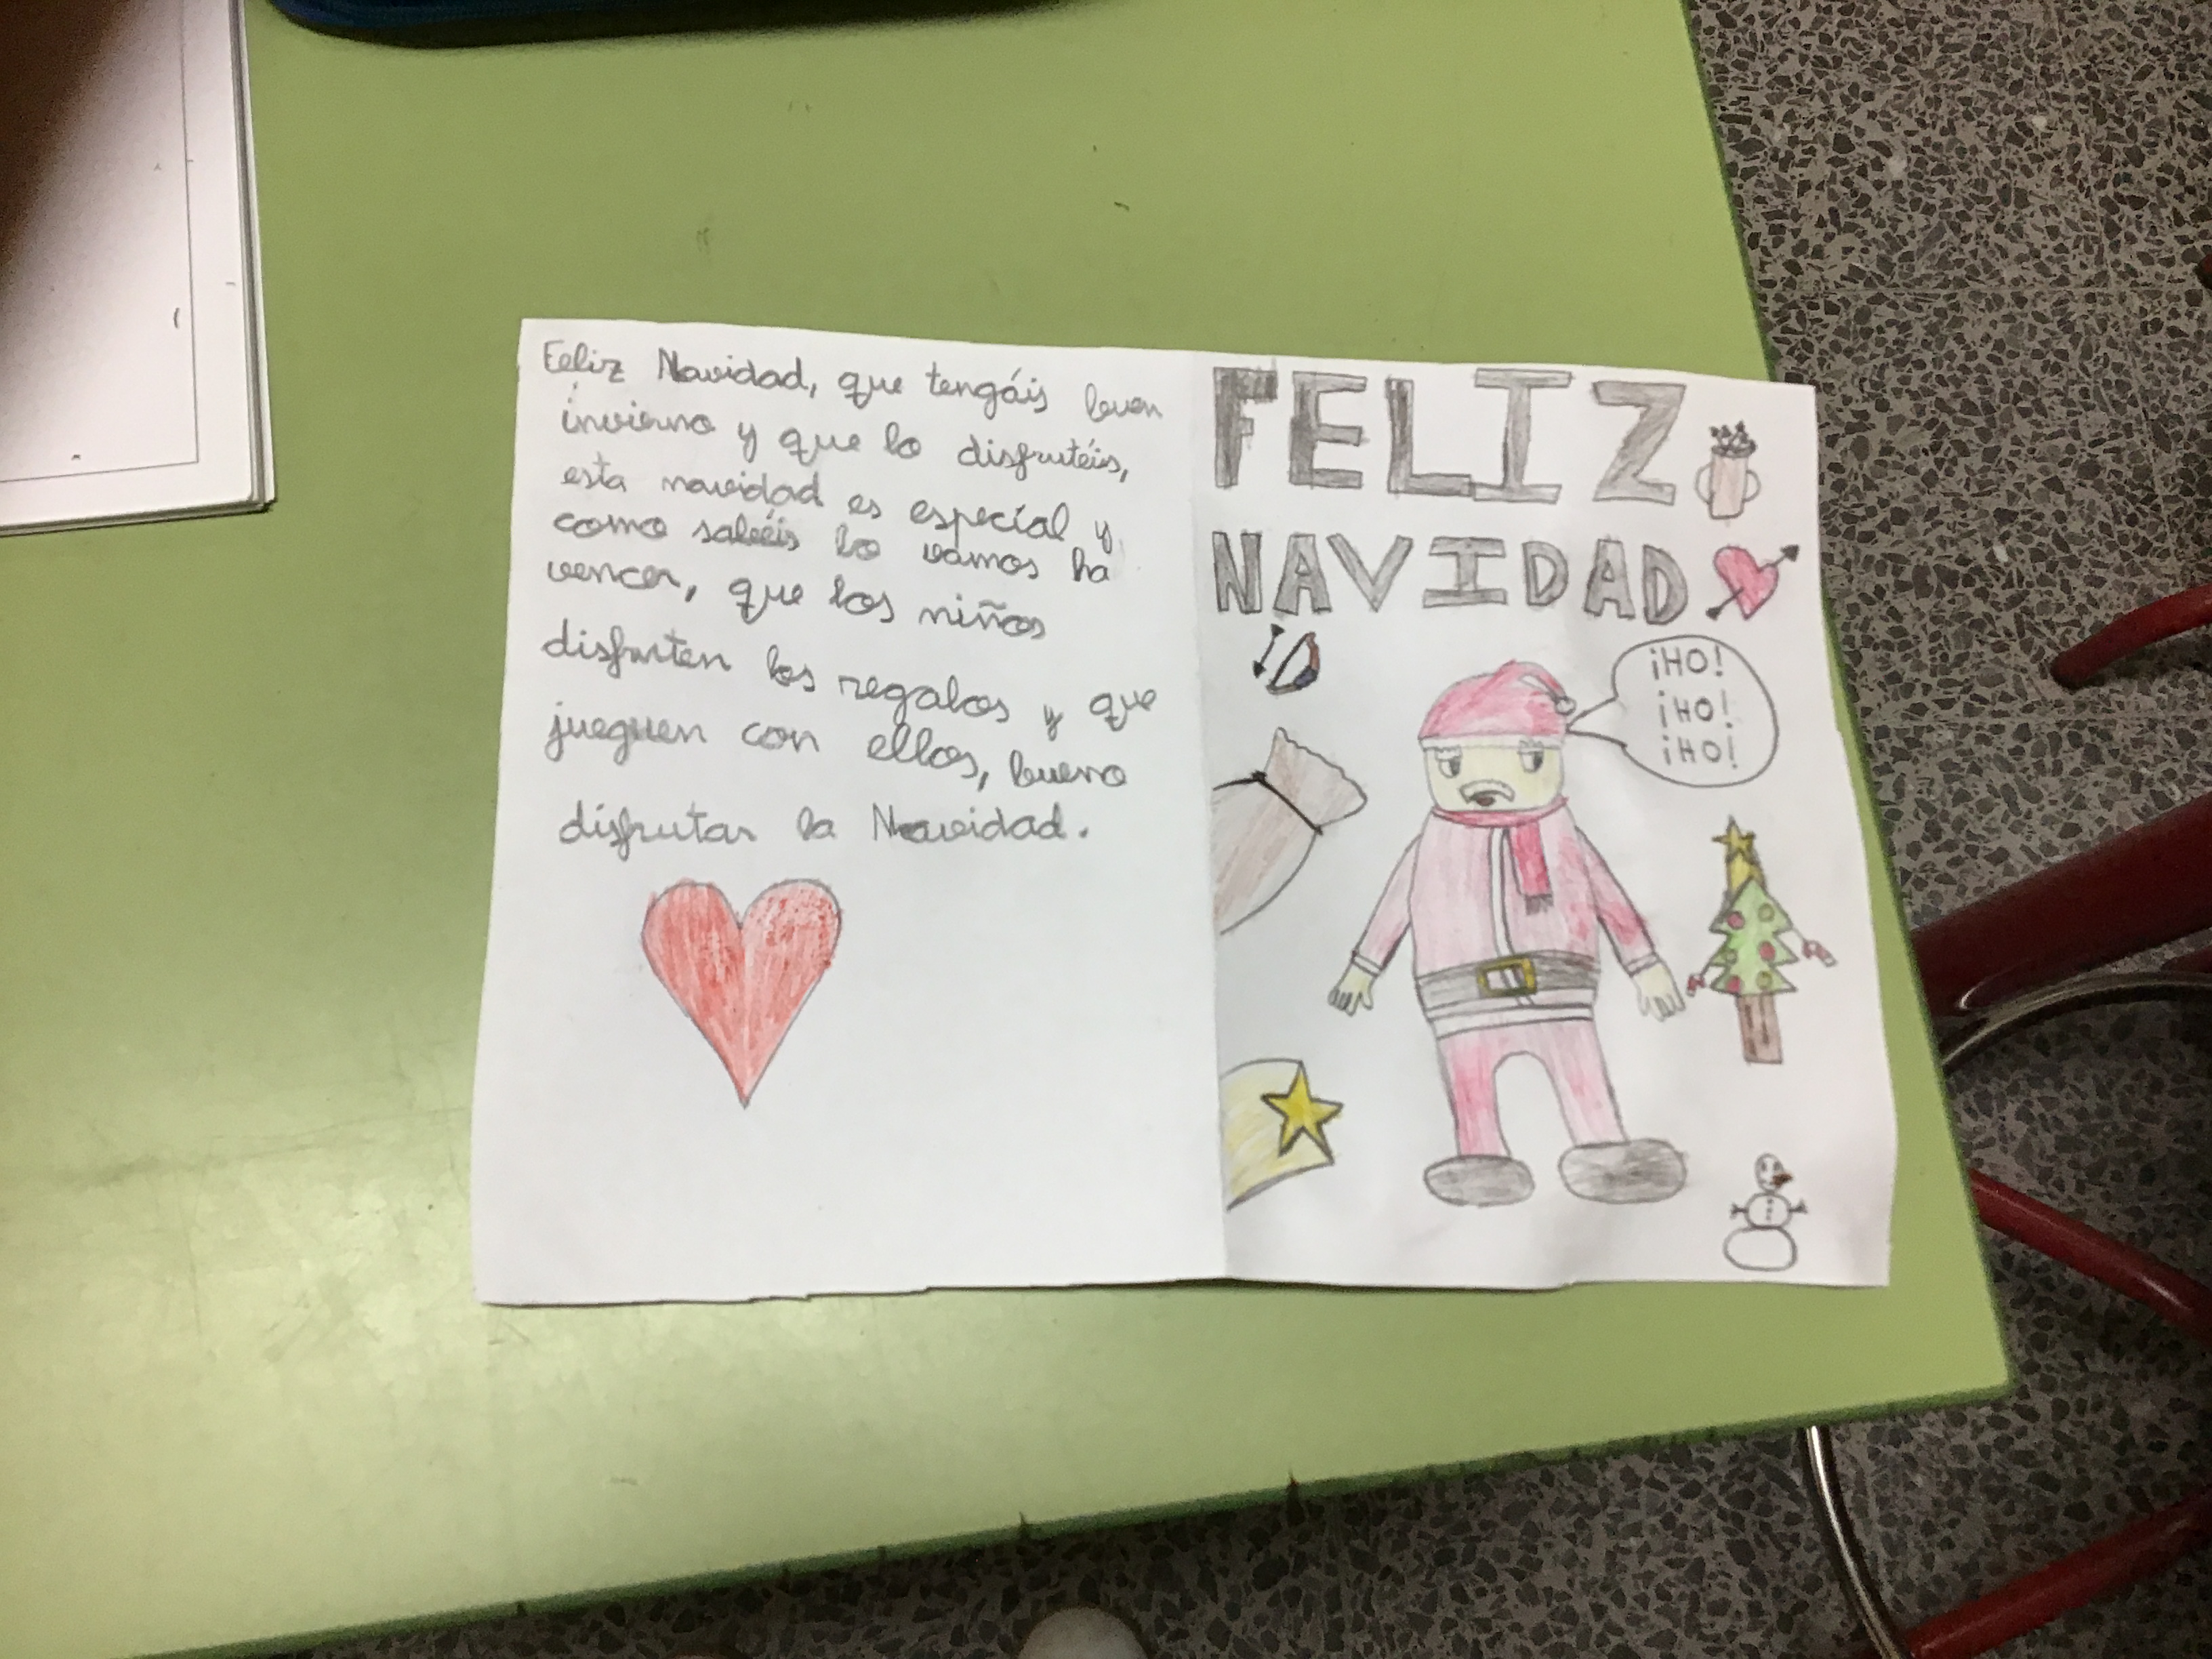 Feliz Navidad, que tengáis buen
invierno y que lo disfrutéis,
esta navidad es especial y
como sabéis lo vamos ha
vencer, que los niños
disfruten los regalos y que
jueguen con ellos, bueno
disfrutar la Navidad.
FELIZ
NAVIDAD
¡HO!
¡HO!
¡HO!